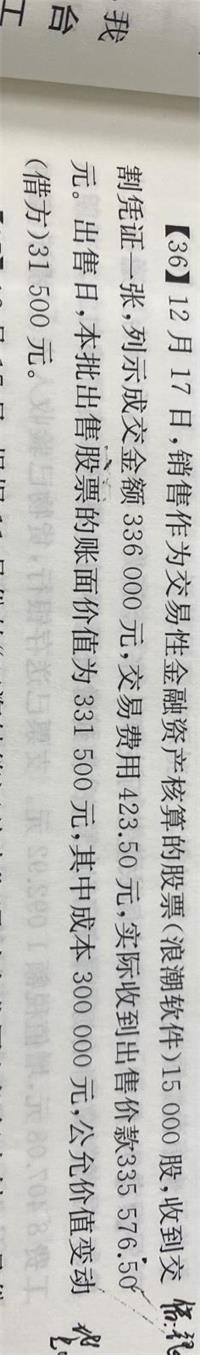 我
台
工
【36】12月17日,销售作为交易性金融资产核算的股票(浪潮软件)15 000股,收到交
割凭证一张,列示成交金额336 000元,交易费用423.50元,实际收到出售价款335 576.50
元。出售日,本批出售股票的账面价值为331 500元,其中成本300 000元,公允价值变动
(借方)31 500元。